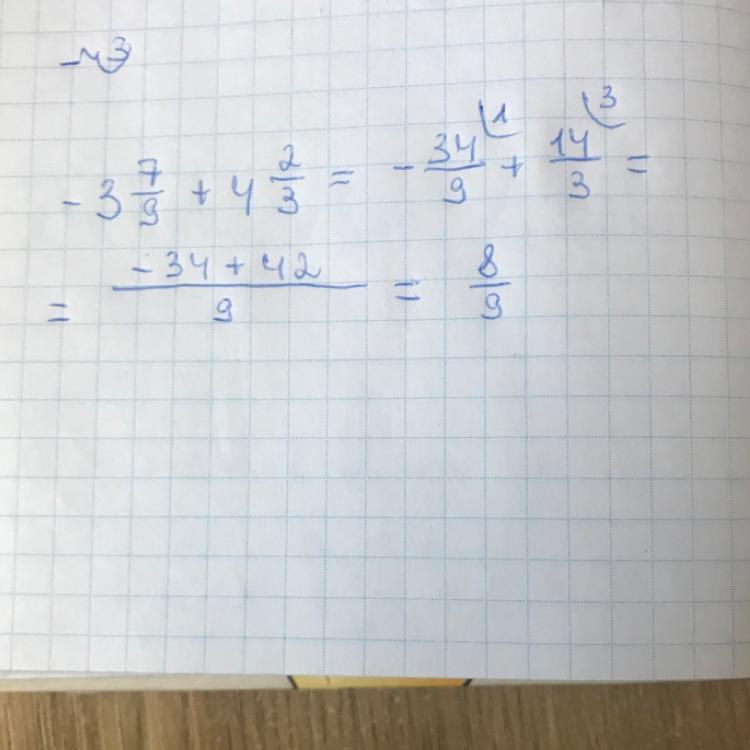 №3
-3 7/9 + 4 2/3 = -34/9 (1 + 14/3 (3 =
= (-34 + 42)/9 = 8/9